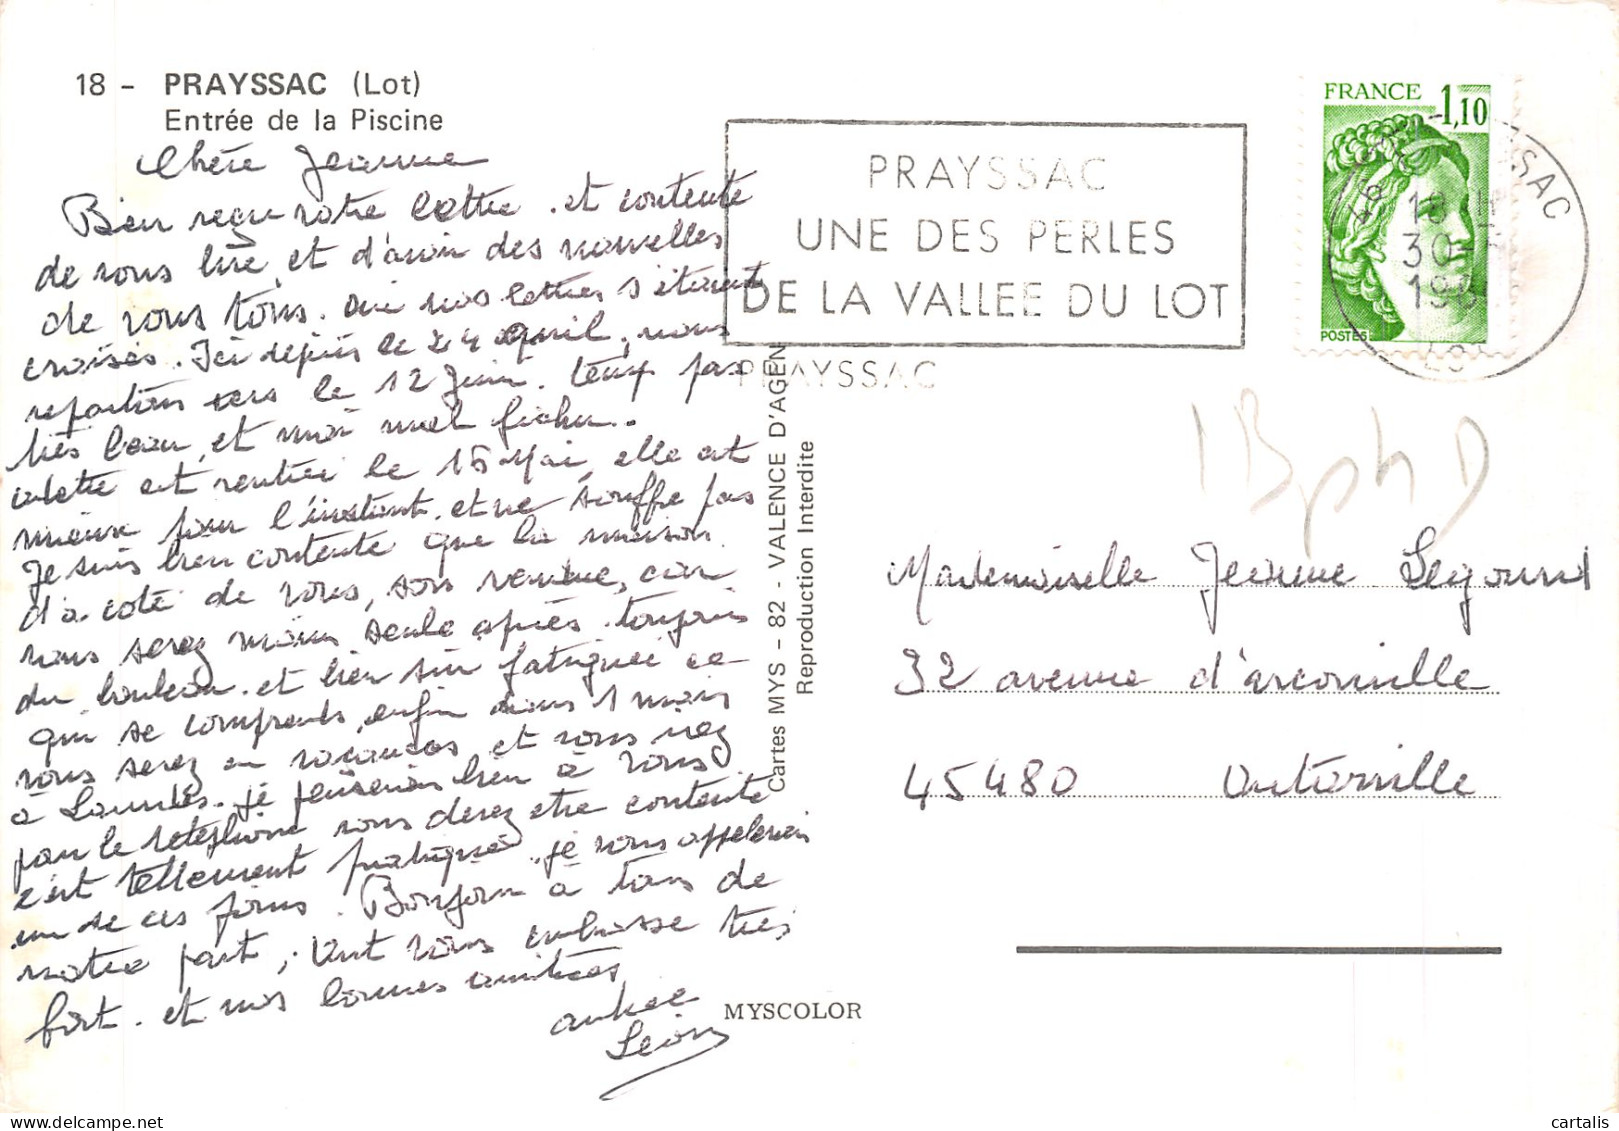 18 - PRAYSSAC (Lot)
Entrée de la Piscine
Chère Jeanne
Bien reçu votre lettre. et contente
de vous lire, et d'avoir des nouvelles
de vous tous. nos lettres s'étaient
croisés. Ici depuis le 24 avril, nous
repartons vers le 12 Juin. temps pas
très beau, et moi mal fichu.
est rentrée le 15 Mai, elle est
mieux pour l'instant. et ne souffre pas
Je suis bien contente que la maison
d'a coté de vous, sois vendue, car
vous serez moins seule après. toujours
du bouleau. et bien sur fatiguée ce
qui se comprends, enfin dans 1 mois
vous serez en vacances et vous irez
à Lourdes. je penserais bien à vous
pour le telephone vous devez etre contente
c'est tellement pratique. je vous appelerai
un de ces jours. Bonjour à tous de
notre part, vous embrasse très
fort. et nos bonnes amitiées
Léon
PRAYSSAC
UNE DES PERLES
DE LA VALLEE DU LOT
PRAYSSAC
FRANCE 1,10
POSTES
PRAYSSAC
18 H
30
19
LOT
Cartes MYS - 82 - VALENCE D'AGEN
Reproduction Interdite
MYSCOLOR
Mademoiselle Jeanne Legourd
32 avenue d'arconville
45480 Outarville
cartalis